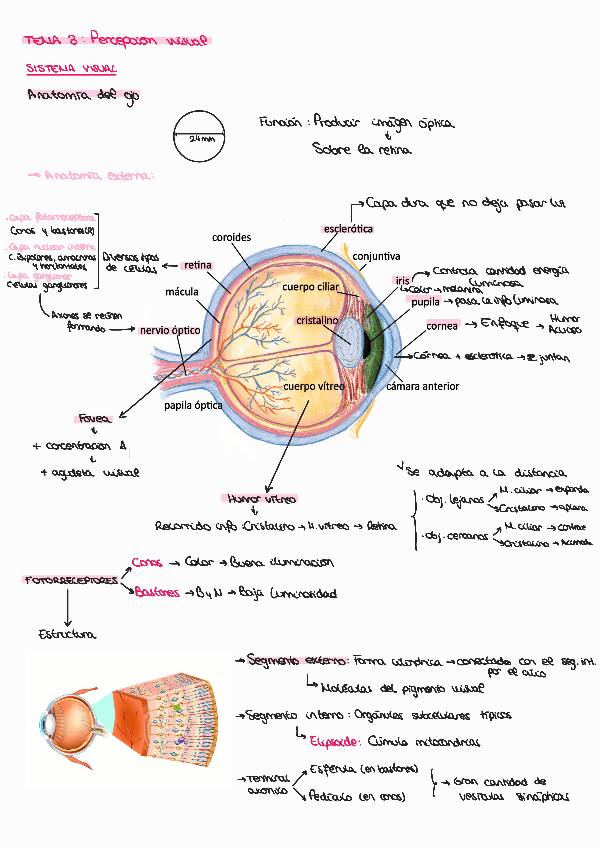 TEMA 3: Percepción visual
SISTEMA VISUAL
Anatomía del ojo
24mm
Función: Producir imágen óptica
Sobre la retina
→ Anatomía externa:
→ Capa dura que no deja pasar luz
esclerótica
coroides
conjuntiva
· Capa fotorreceptora
Conos y bastones
· Capa nuclear interna
C. Bipolares, amacrinas
y horizontales
· Capa ganglionar
Células ganglionares
Diversos tipos
de células
retina
mácula
cuerpo ciliar
iris
→ Controla cantidad energía
luminosa
↳ Color → melanina
pupila → pasa la info luminosa
cristalino
cornea → Enfoque → Humor
Acuoso
Axones se reúnen
formando
nervio óptico
→ Córnea + esclerótica → se juntan
cuerpo vítreo
cámara anterior
papila óptica
Fóvea
+ concentración
+ agudeza visual
Humor vítreo
Recorrido info: Cristalino → H. vítreo → Retina
Se adapta a la distancia
· Obj. lejanos
M. ciliar → expande
Cristalino → aplana
· Obj. cercanos
M. ciliar → contrae
Cristalino → Acomoda
FOTORRECEPTORES
Conos → Color → Buena iluminación
Bastones → B y N → Baja luminosidad
Estructura
→ Segmento externo: Forma cilíndrica → conectados con el seg. int.
por el cilio
↳ Moléculas del pigmento visual
→ Segmento interno: Orgánulos subcelulares típicos
↳ Elipsoide: Cúmulo mitocondrias
→ Terminal
axónico
Esférula (en bastones)
Pedículo (en conos)
→ Gran cantidad de
vesículas sinápticas